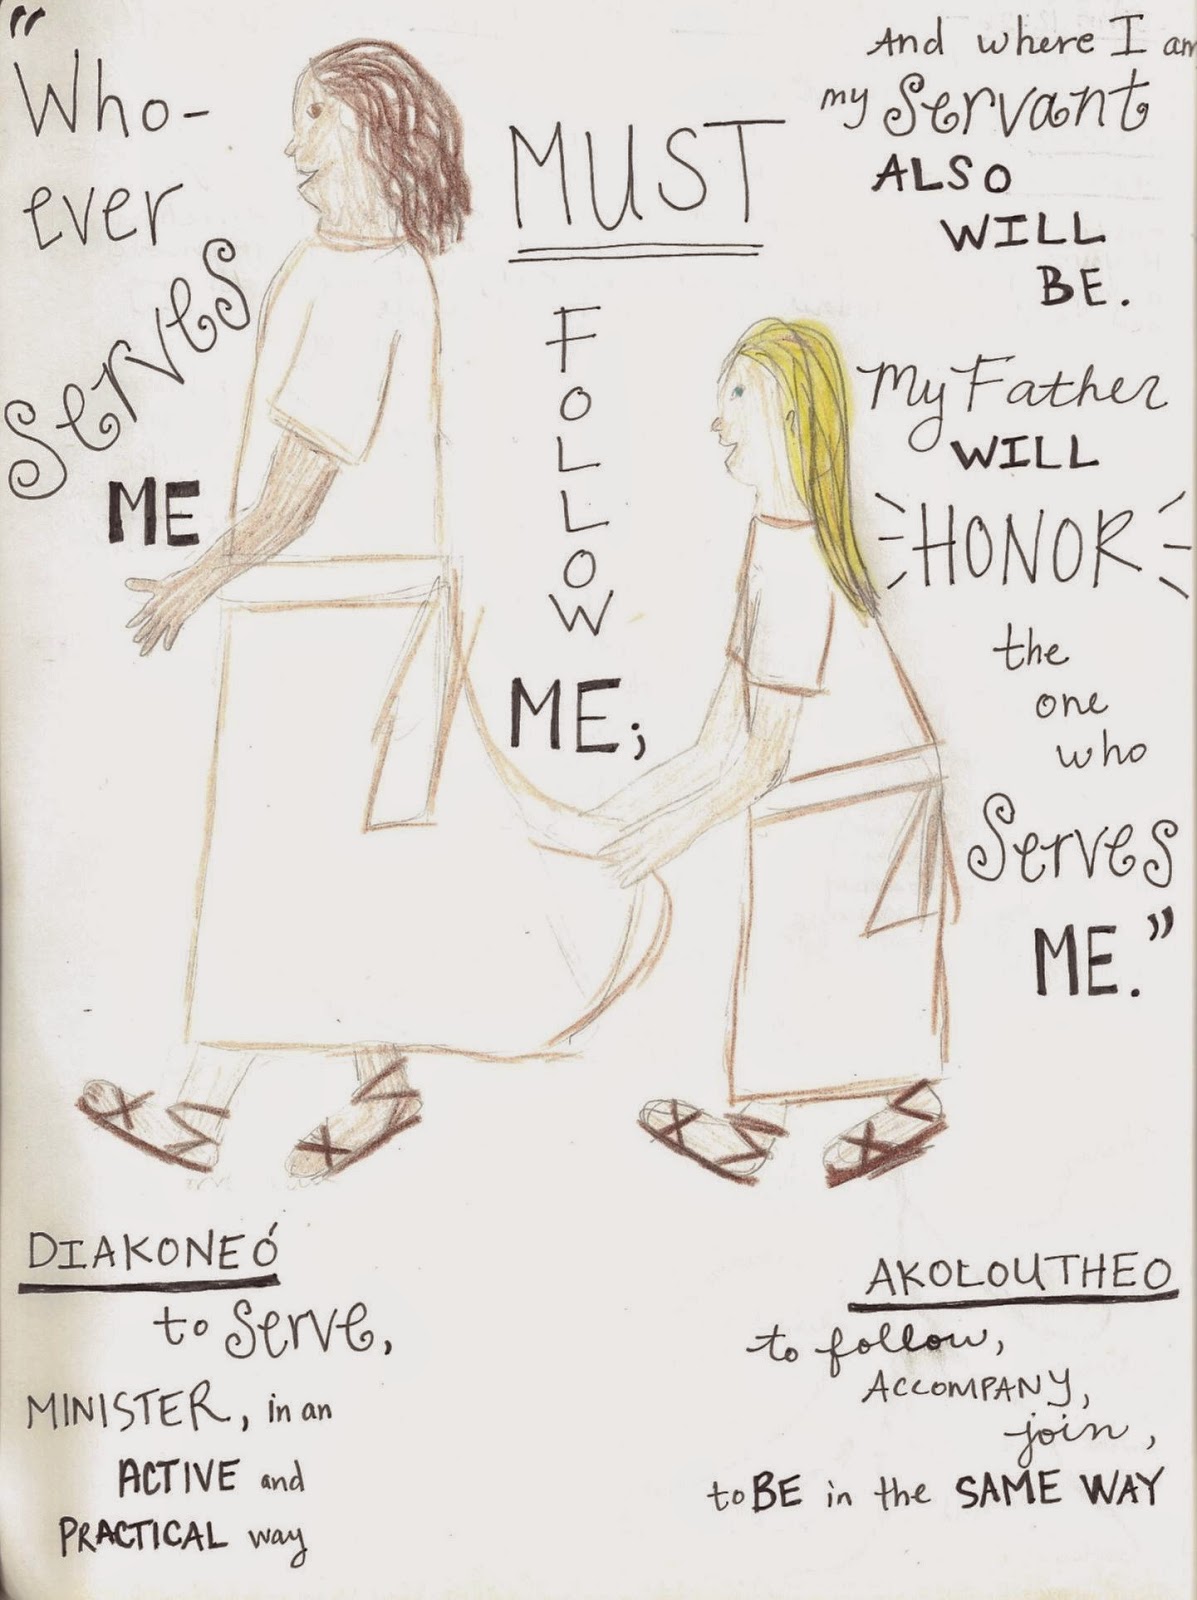 "
Who-
ever
Serves
ME
MUST
FOLLOW
ME;
And where I am
my Servant
ALSO
WILL
BE.
My Father
WILL
HONOR
the
one
who
Serves
ME."
DIAKONEÓ
to Serve,
MINISTER, in an
ACTIVE and
PRACTICAL way
AKOLOUTHEO
to follow,
ACCOMPANY,
join,
to BE in the SAME WAY